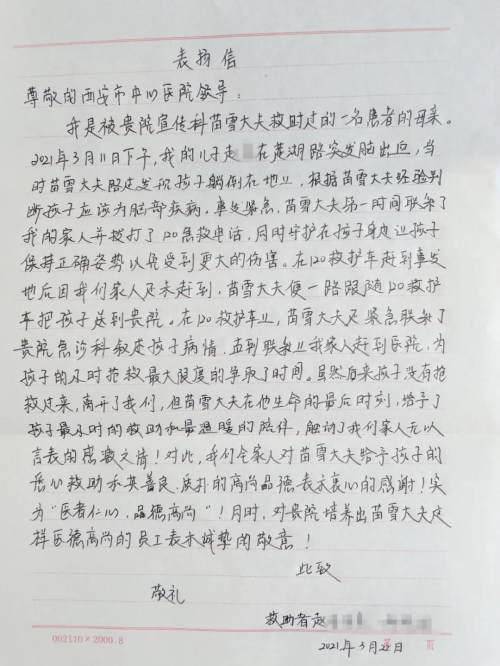 表扬信
尊敬的西安市中心医院领导：
我是被贵院宣传科苗雪大夫救助过的一名患者的母亲。
2021年3月11日下午，我的儿子赵 在莲湖路突发脑出血，当
时苗雪大夫路过发现孩子躺倒在地上，根据苗雪大夫经验判
断孩子应该为脑部疾病，事发紧急，苗雪大夫第一时间联系了
我的家人并拨打了120急救电话，同时守护在孩子身边让孩子
保持正确姿势以免受到更大的伤害。在120救护车赶到事发
地后因我们家人还未赶到，苗雪大夫便一路跟随120救护
车把孩子送到贵院。在120救护车上，苗雪大夫还紧急联系了
贵院急诊科叙述孩子病情，直到联系上我家人赶到医院，为
孩子的及时抢救最大限度的争取了时间。虽然后来孩子没有抢
救过来，离开了我们，但苗雪大夫在他生命的最后时刻，给予了
孩子最及时的救助和最温暖的陪伴，触动了我们家人无以
言表的感激之情！对此，我们全家人对苗雪大夫给予孩子的
悉心救助和其善良、质朴的高尚品德表示衷心的感谢！实
为“医者仁心，品德高尚”！同时，对贵院培养出苗雪大夫这
样医德高尚的员工表示诚挚的敬意！
此致
敬礼
救助者赵
2021年3月22日
002110×2000.8 第 页